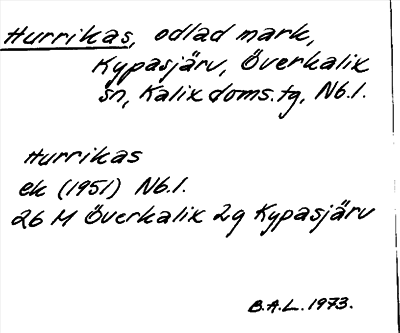 Hurrikas, odlad mark,
Kypasjärv, Överkalix
sn, Kalix doms.tg, Nb.l.
Hurrikas
ek (1951) Nb.l.
26 M Överkalix 2g Kypasjärv
B.A.L. 1973.